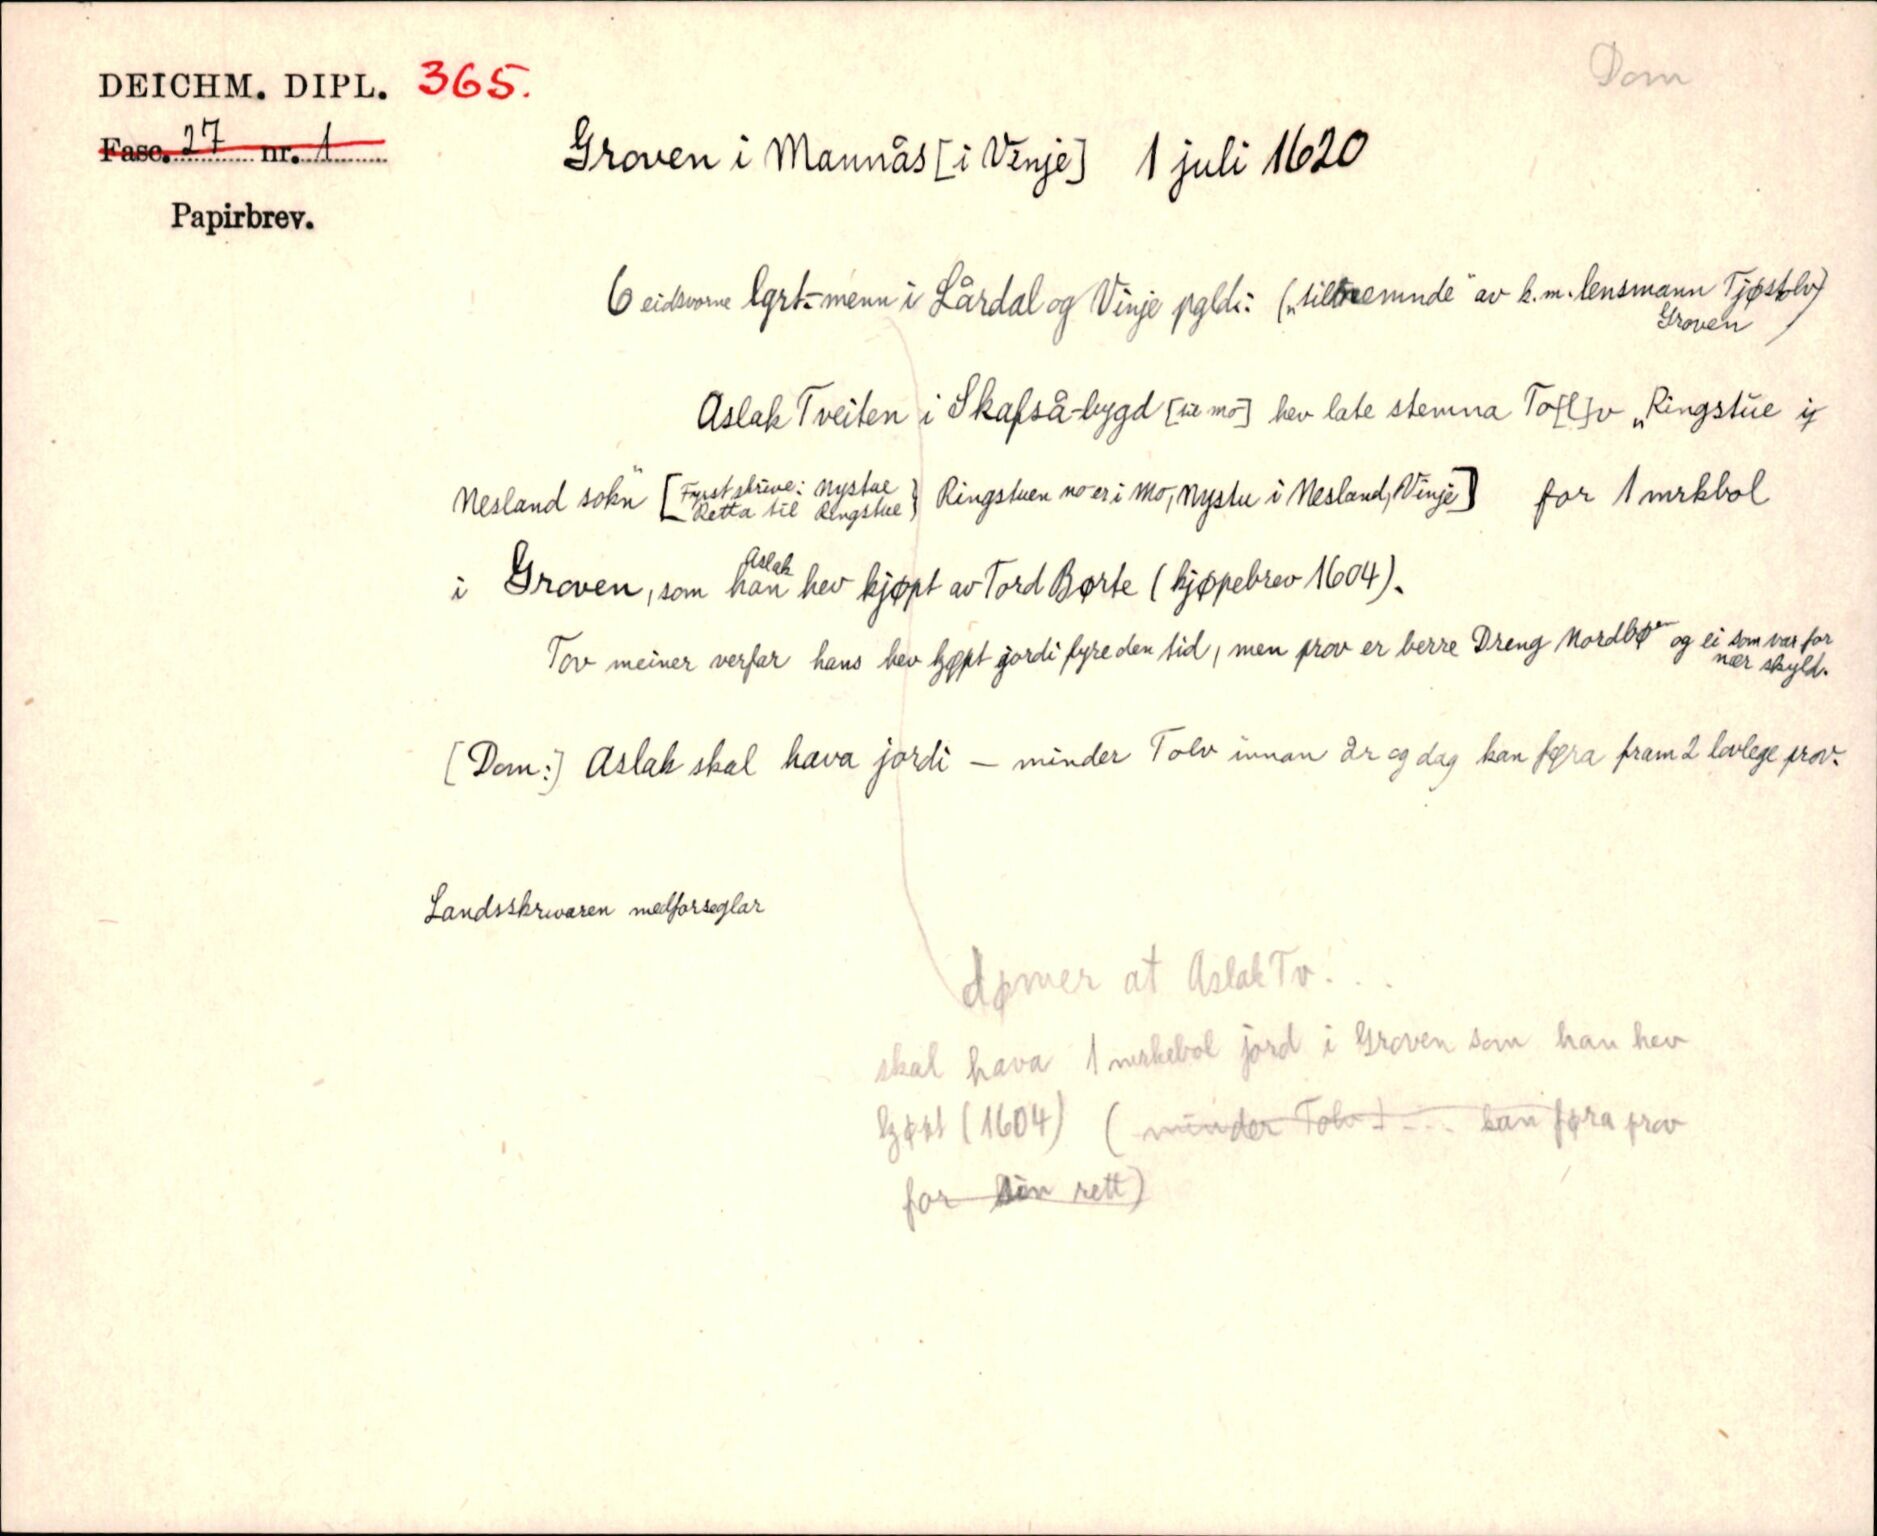 DEICHM. DIPL. 365.
Dom
Fasc. 27 nr. 1
Papirbrev.
Groven i Mannås [i Vinje] 1 juli 1620
6 eidsvorne lgrt-menn i Lårdal og Vinje pgldi: („tilnemnde" av k.m. lensmann Tjøstolv
Groven)
Aslak Tveiten i Skafså-bygd [til Mo] hev late stemna To[l]v „Ringstue i
Nesland sokn" [Fyrst skrive: Nystue
Retta til Ringstue} Ringstuen no er i Mo, Nystu i Nesland, Vinje] for 1 mrkbol
i Groven, som han Aslak hev kjøpt av Tord Børte (kjøpebrev 1604).
Tov meiner verfar hans hev kjøpt jordi fyre den tid, men prov er berre Dreng Nordbøen og ei som var for
nær skyld.
[Dom:] Aslak skal hava jordi – minder Tolv innan år og dag kan føra fram 2 lovlege prov.
Landsskrivaren medforseglar
dømer at Aslak Tv. . .
skal hava 1 mrkebol jord i Groven som han hev
kjøpt (1604) (minder Tolv . . . kan føra prov
for sin rett)